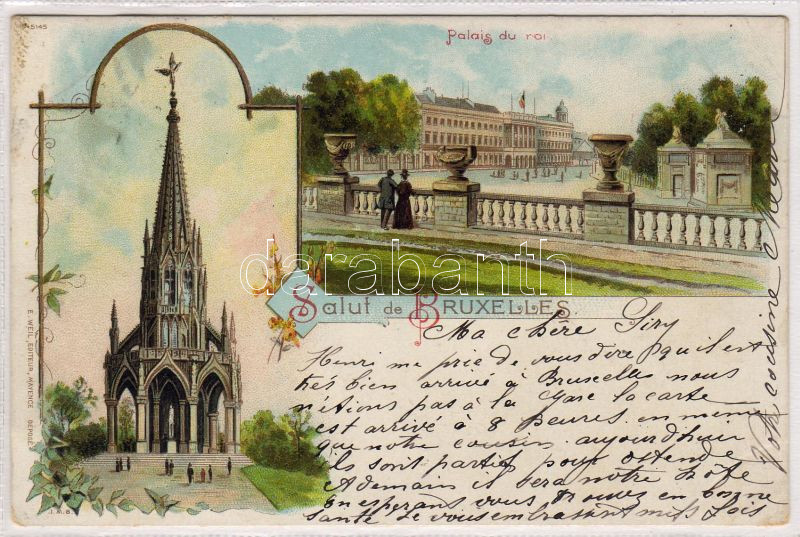 45145
Palais du roi
darabanth
Salut de BRUXELLES.
E. WEIL, EDITEUR, MAYENCE DÉPOSÉ
J.M.B.
Ma chère
Henri me prie de vous dire qu'il est
très bien arrivé à Bruxelles nous
n'étions pas à la gare la carte
est arrivé à 8 heures en même
que notre cousin aujourdhuir
ils sont partis pour ostende
et demain il sera notre hôte
en esperant vous trouvez en bonne
santé je vous embrasse mill fois
Votre cousine